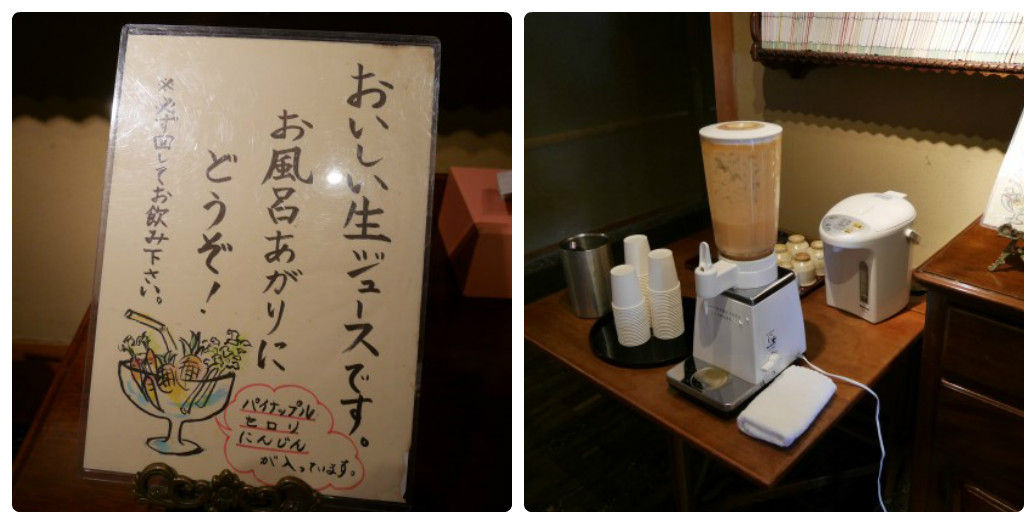 おいしい生ジュースです。
お風呂あがりに
どうぞ!
※必ず回してお飲み下さい。
パイナップル
セロリ
にんじん
が入っています。